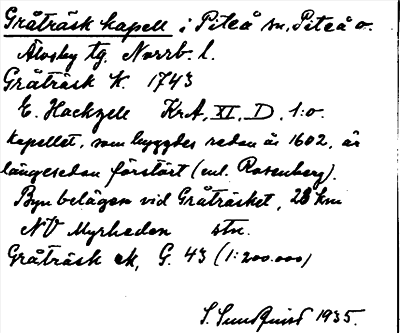 Gråträsk kapell i Piteå sn, Piteå o.
Älvsby tg. Norrb. l.
Gråträsk K. 1743
E. Hackzell KrA, XI, D, 1:o.
Kapellet, som byggdes redan år 1602, är
längesedan förstört (enl. Rosenberg).
Byn belägen vid Gråträsket, 28 km
NV Myrheden stn.
Gråträsk ek, G. 43 (1:200.000)
S. Sundquist 1935.